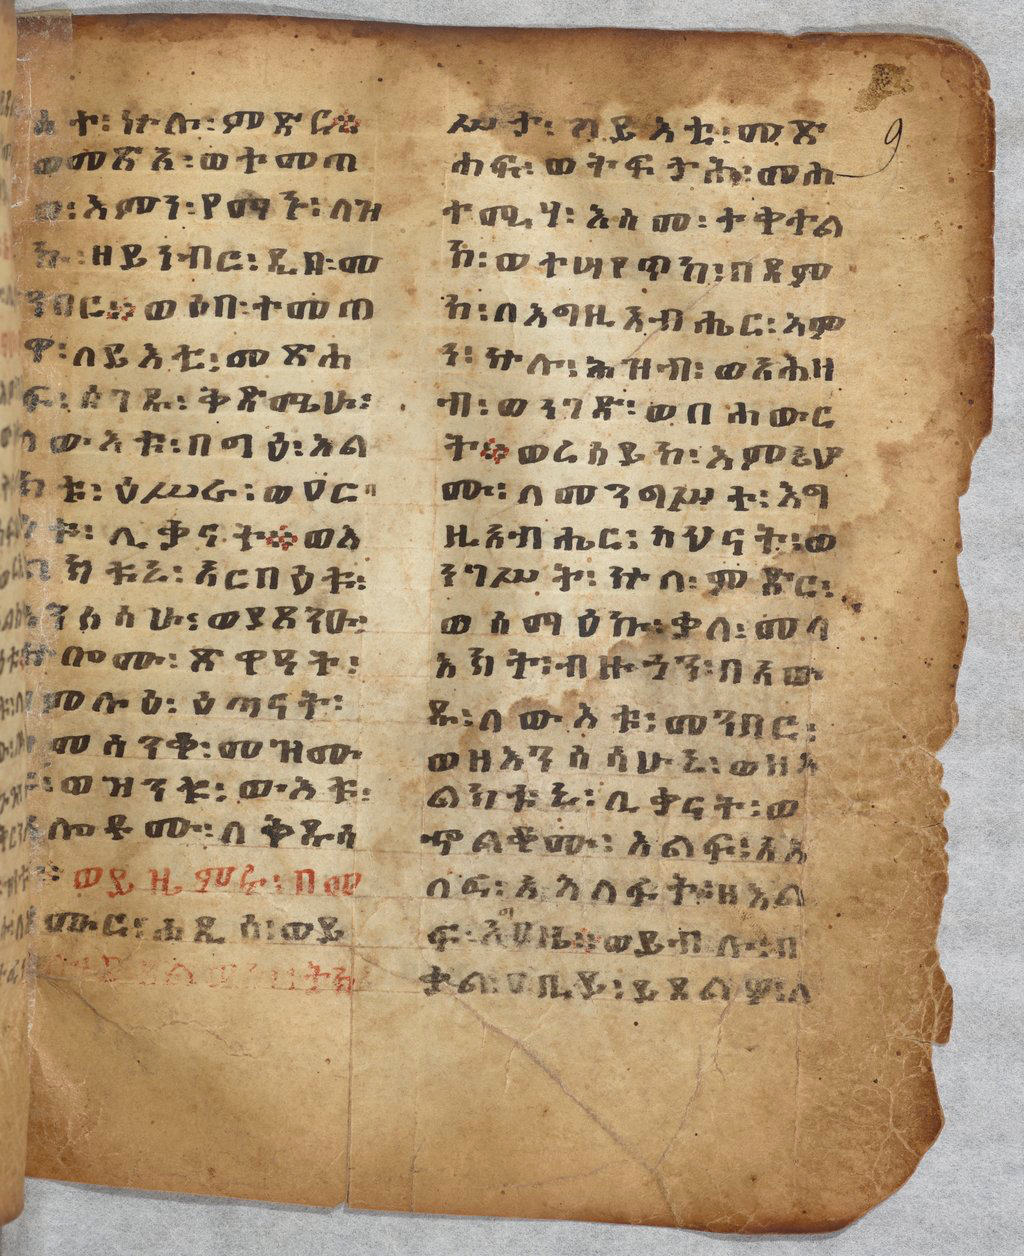 እት፡ ኵሉ፡ ምድር፨
ወመጽአ፡ ወተመጠ
ዎ፡ እምን፡ የማኑ፡ ለዝ
ኩ፡ ዘይነብር፡ ዲበ፡ መ
ንበር፨ ወሶበ፡ ተመጠ
ዋ፡ ለይእቲ፡ መጽሐ
ፍ፡ ሰገዱ፡ ቅድሜሁ፡
ለውእቱ፡ በግዕ፡ እል
ክቱ፡ ዕሥራ፡ ወ፬ር
ቱ፡ ሊቃናት፨ ወእ
ልክቱኒ፡ አርበዕቱ፡
እንስሳሁ፡
ኵሎሙ፡ ጽዋዓት፡
ምሉዕ፡ ዕጣናት፡
መሰንቆ፡ መዝሙ
ር፡ ወዝንቱ፡ ውእቱ፡
ጸሎቶሙ፡ ለቅዱሳ
ን፡ ወይዜምሩ፡ በመ
ዝሙር፡ ሐዲስ፡ ወይ
9
ሥታ፡ ለይእቲ፡ መጽ
ሐፍ፡ ወትፍታሕ፡ መሐ
ተሚሃ፡ እስመ፡ ተቀተል
ከ፡ ወተሣየጥከ፡ በደም
ከ፡ ለእግዚአብሔር፡ እም
ነ፡ ኵሉ፡ ሕዝብ፡ ወአሕዛ
ብ፡ ወነገድ፡ ወበሐውር
ት፨ ወረሰይከ፡ እምኔሆ
ሙ፡ ለመንግሥት፡ እግ
ዚአብሔር፡ ካህናት፡ ወ
ነግሥት፡ ኵለ፡ ምድር፡
ወሰማዕኩ፡ ቃለ፡ መላ
እክት፡ ብዙኃን፡ በአው
ዱ፡ ለውእቱ፡ መንበር፡
ወዘእንስሳሁኒ፡ ወዘእ
ልክቱኒ፡ ሊቃናት፡ ወ
ኍልቆሙ፡ እልፍ፡ አእ
ላፍ፡ አእላፋት፡ ዘእል
ወይብሉ፡ በ
ቃል፡ ዐቢይ፡ ይደልዎ፡ ለ